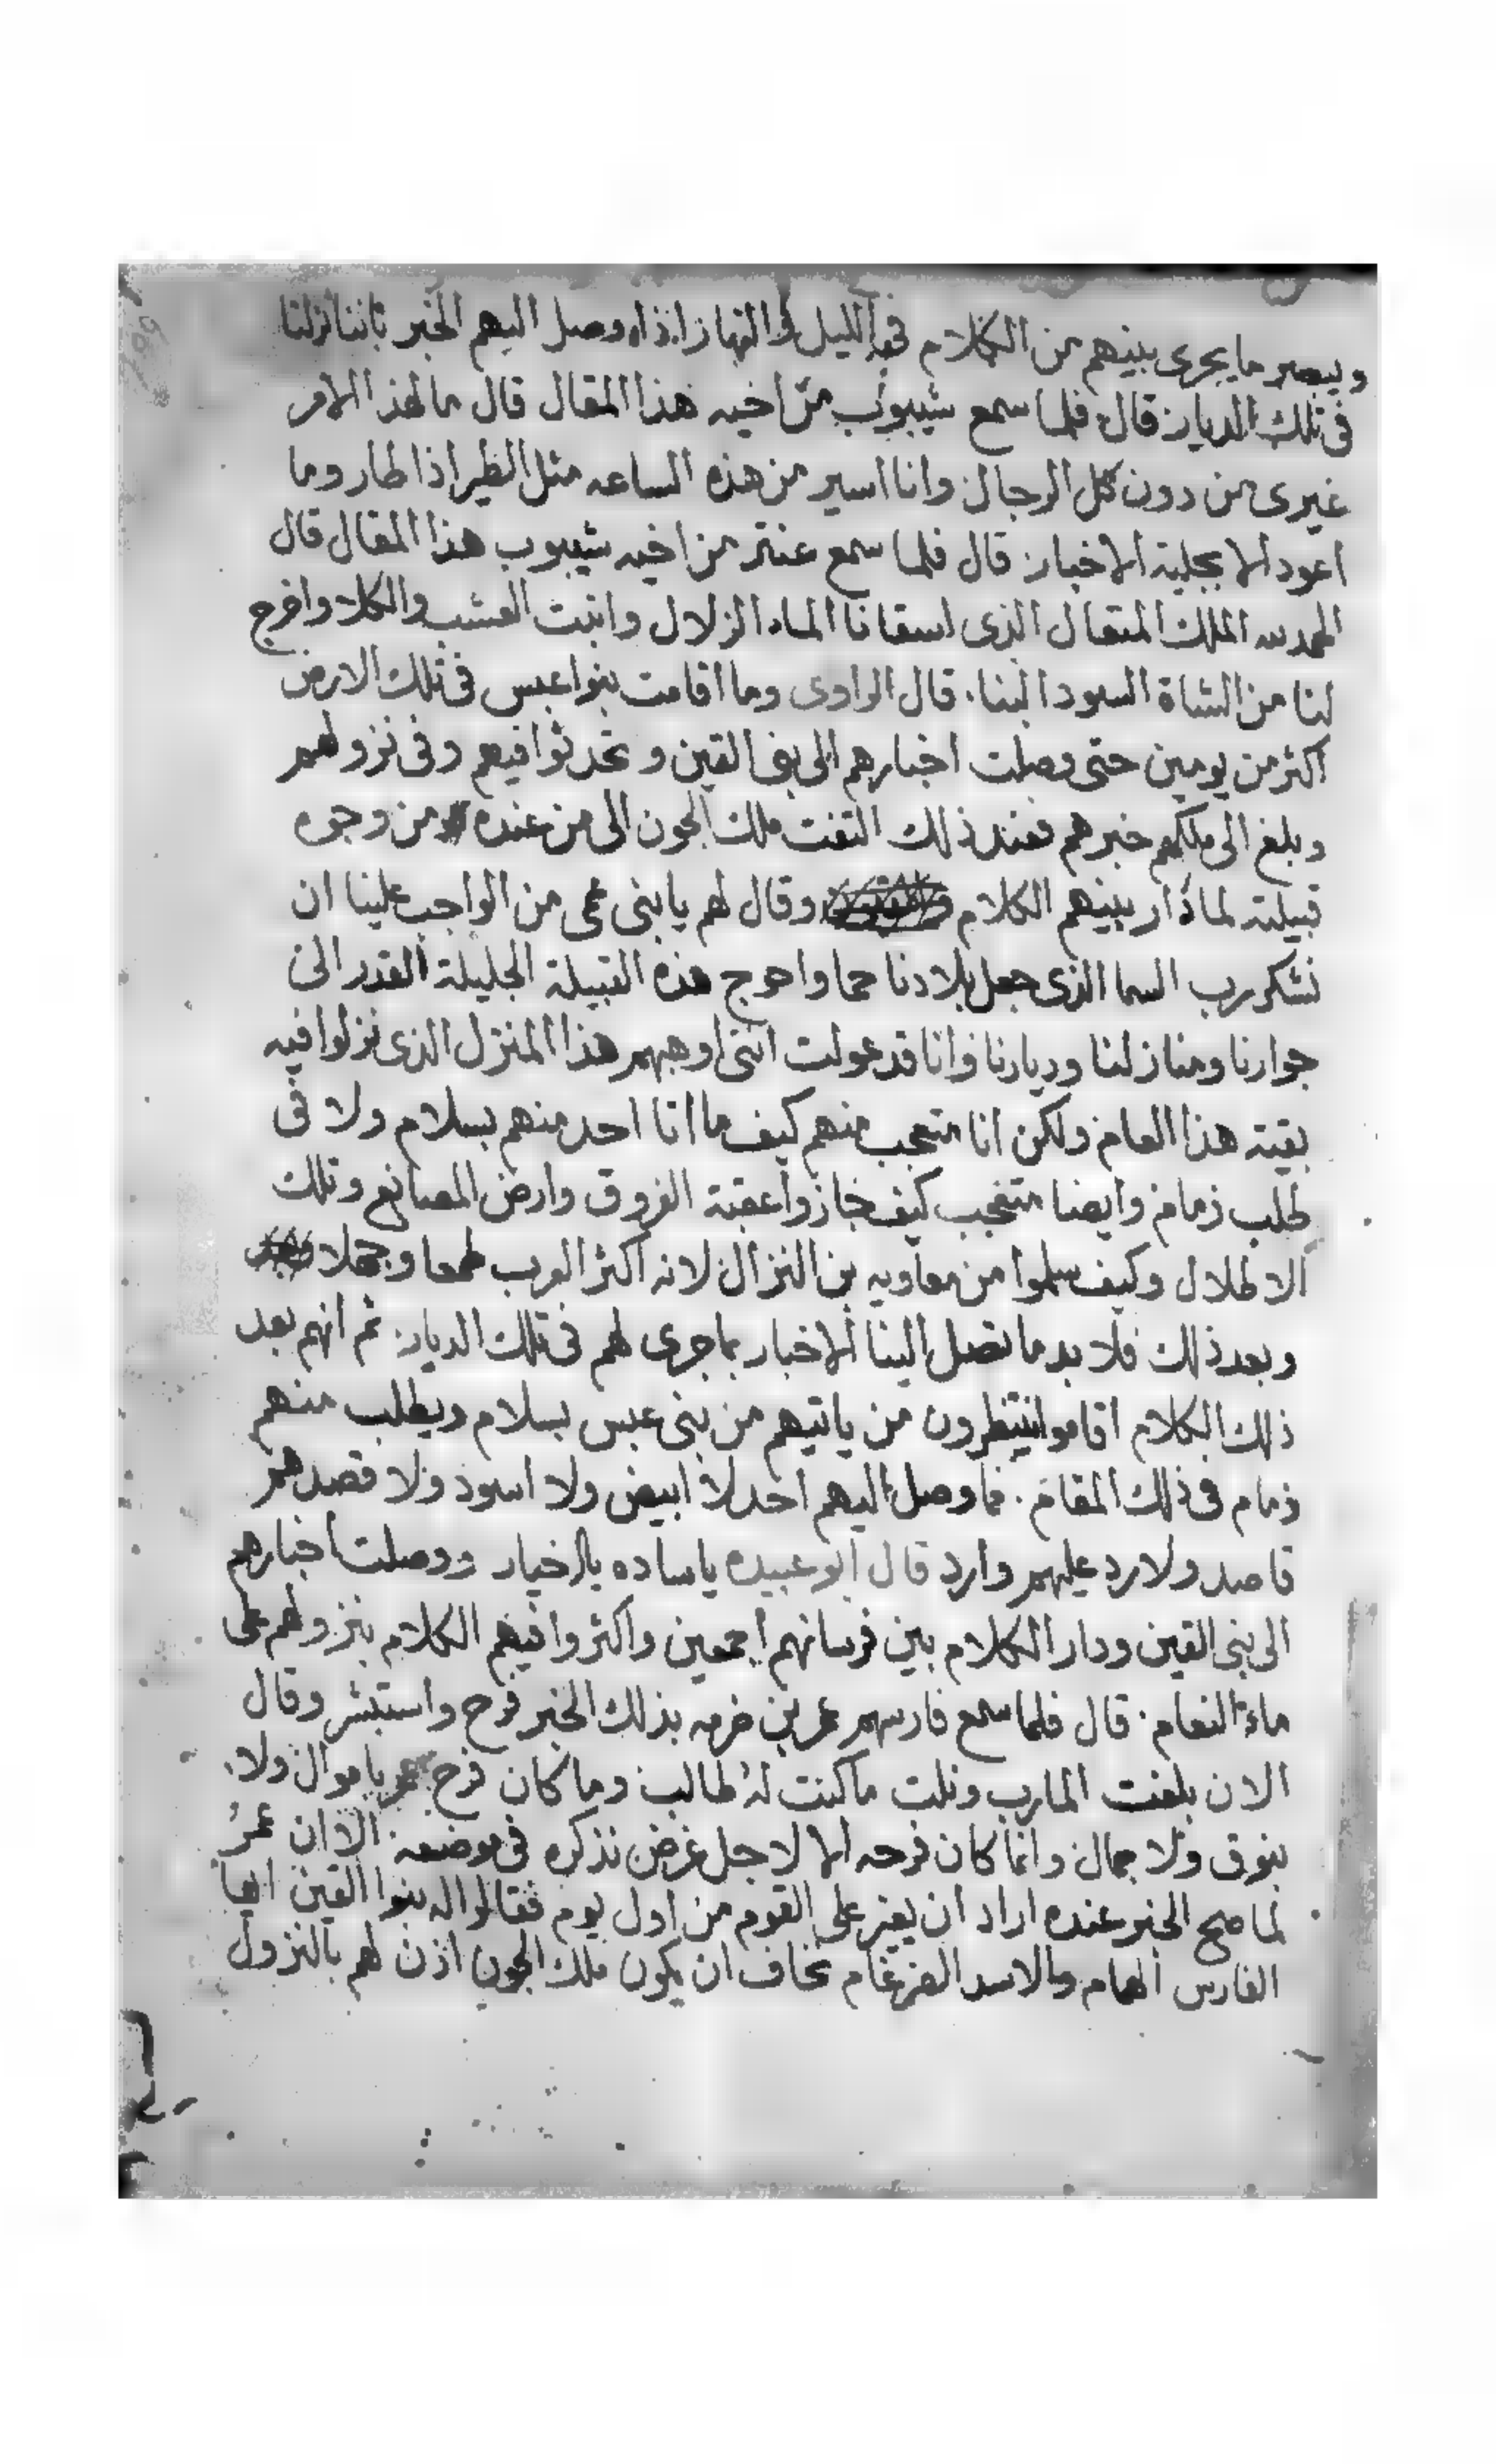 ويبصر ما يجرى بينهم من الكلام فى الليل والنهار اذا وصل اليهم الخبر باننا نزلنا
فى تلك الديار قال فلما سمع شيبوب من اخيه هذا المقال قال ما لهذا الامر
غيرى من دون كل الرجال وانا اسير من هذه الساعه مثل الطير اذا طار وما
اعود الا بجلية الاخبار قال فلما سمع عنتر من اخيه شيبوب هذا المقال قال
الحمد لله الملك المتعال الذى اسقانا الماء الزلال وانبت العشب والكلا واخرج
لنا من الشاة السودا لبنا. قال الراوى وما اقامت بنوا عبس فى تلك الارض
اكثر من يومين حتى وصلت اخبارهم الى بنى القين وتحدثوا فيهم وفى نزولهم
وبلغ الى ملكهم خبرهم فعند ذلك التفت ملك الجون الى من عنده من وجوه
قبيلته لما دار بينهم الكلام وقال لهم يا بنى عمى من الواجب علينا ان
نشكر رب السما الذى جعل بلادنا حما واحوج هذه القبيلة الجليلة القدر الى
جوارنا ومنازلنا وديارنا وانا قد عولت اننى اوهبهم هذا المنزل الذى نزلوا فيه
بقية هذا العام ولكن انا متعجب منهم كيف ما اتا احد منهم بسلام ولا فى
طلب زمام وايضا متعجب كيف جازوا عقبة الفروق وارض المصانع وتلك
الاطلال وكيف سلموا من معاويه بن النزال لانه اكثر العرب طمعا وجهلا
وبعد ذلك فلا بد ما تصل الينا الاخبار بما جرى لهم فى تلك الديار ثم انهم بعد
ذلك الكلام اقاموا ينتظرون من ياتيهم من بنى عبس بسلام ويطلب منهم
ذمام فى ذلك المقام. فما وصل اليهم احد لا ابيض ولا اسود ولا قصدهم
قاصد ولا رد عليهم وارد قال ابو عبيده يا ساده يا اخيار ووصلت اخبارهم
الى بنى القين ودار الكلام بين فرسانهم اجمعين واكثروا فيهم الكلام بنزولهم على
ماء النعام. قال فلما سمع فارسهم عمر بن ضرمه بذلك الخبر فرح واستبشر وقال
الان بلغت المارب ونلت ما كنت له طالب وما كان فرح عمر باموال ولا
بنوق ولا جمال وانما كان فرحه الا لاجل غرض نذكره فى موضعه الا ان عمرُ
لما صح الخبر عنده اراد ان يغير على القوم من اول يوم فقالوا له بنوا القين ايها
الفارس الهمام والاسد الضرغام نخاف ان يكون ملك الجون اذن لهم بالنزول